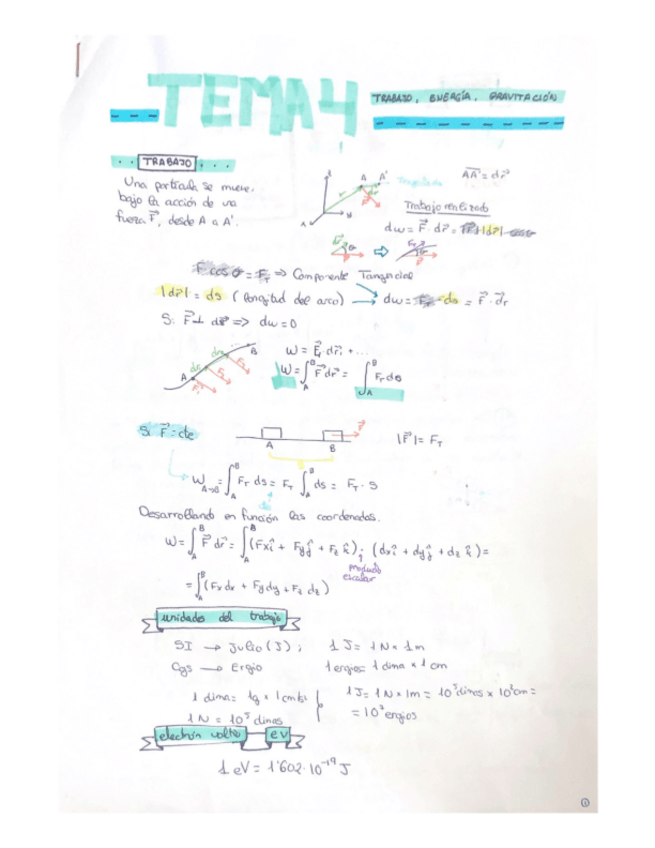 TEMA 4
TRABAJO, ENERGÍA, GRAVITACIÓN
TRABAJO
Una partícula se mueve,
bajo la acción de una
fuerza F⃗, desde A a A'.
A A'
Trayectoria
AA' = dr⃗
Trabajo realizado
dw = F⃗ · dr⃗ =
F cos θ = F_T ⇒ Componente Tangencial
|dr⃗| = ds (longitud del arco) → dw = F_T · ds = F⃗ · dr⃗
Si F⃗ ⊥ dr⃗ ⇒ dw = 0
A B
W = F⃗₁ · dr⃗₁ + ...
W = ∫_A^B F⃗ dr⃗ = ∫_A^B F_T ds
Si F⃗ = cte
A B
|F⃗| = F_T
W_A→B = ∫_A^B F_T ds = F_T ∫_A^B ds = F_T · s
Desarrollando en función las coordenadas.
W = ∫_A^B F⃗ dr⃗ = ∫_A^B (Fx î + Fy ĵ + Fz k̂) · (dx î + dy ĵ + dz k̂) =
producto
escalar
= ∫_A^B (Fx dx + Fy dy + Fz dz)
unidades del trabajo
SI → Julio (J); 1 J = 1 N × 1m
Cgs → Ergio 1 ergio = 1 dina × 1 cm
1 dina = 1g × 1 cm/s²
1 N = 10⁵ dinas
1 J = 1 N × 1m = 10⁵ dinas × 10² cm =
= 10⁷ ergios
electrón voltio eV
1 eV = 1'602 · 10⁻¹⁹ J
1